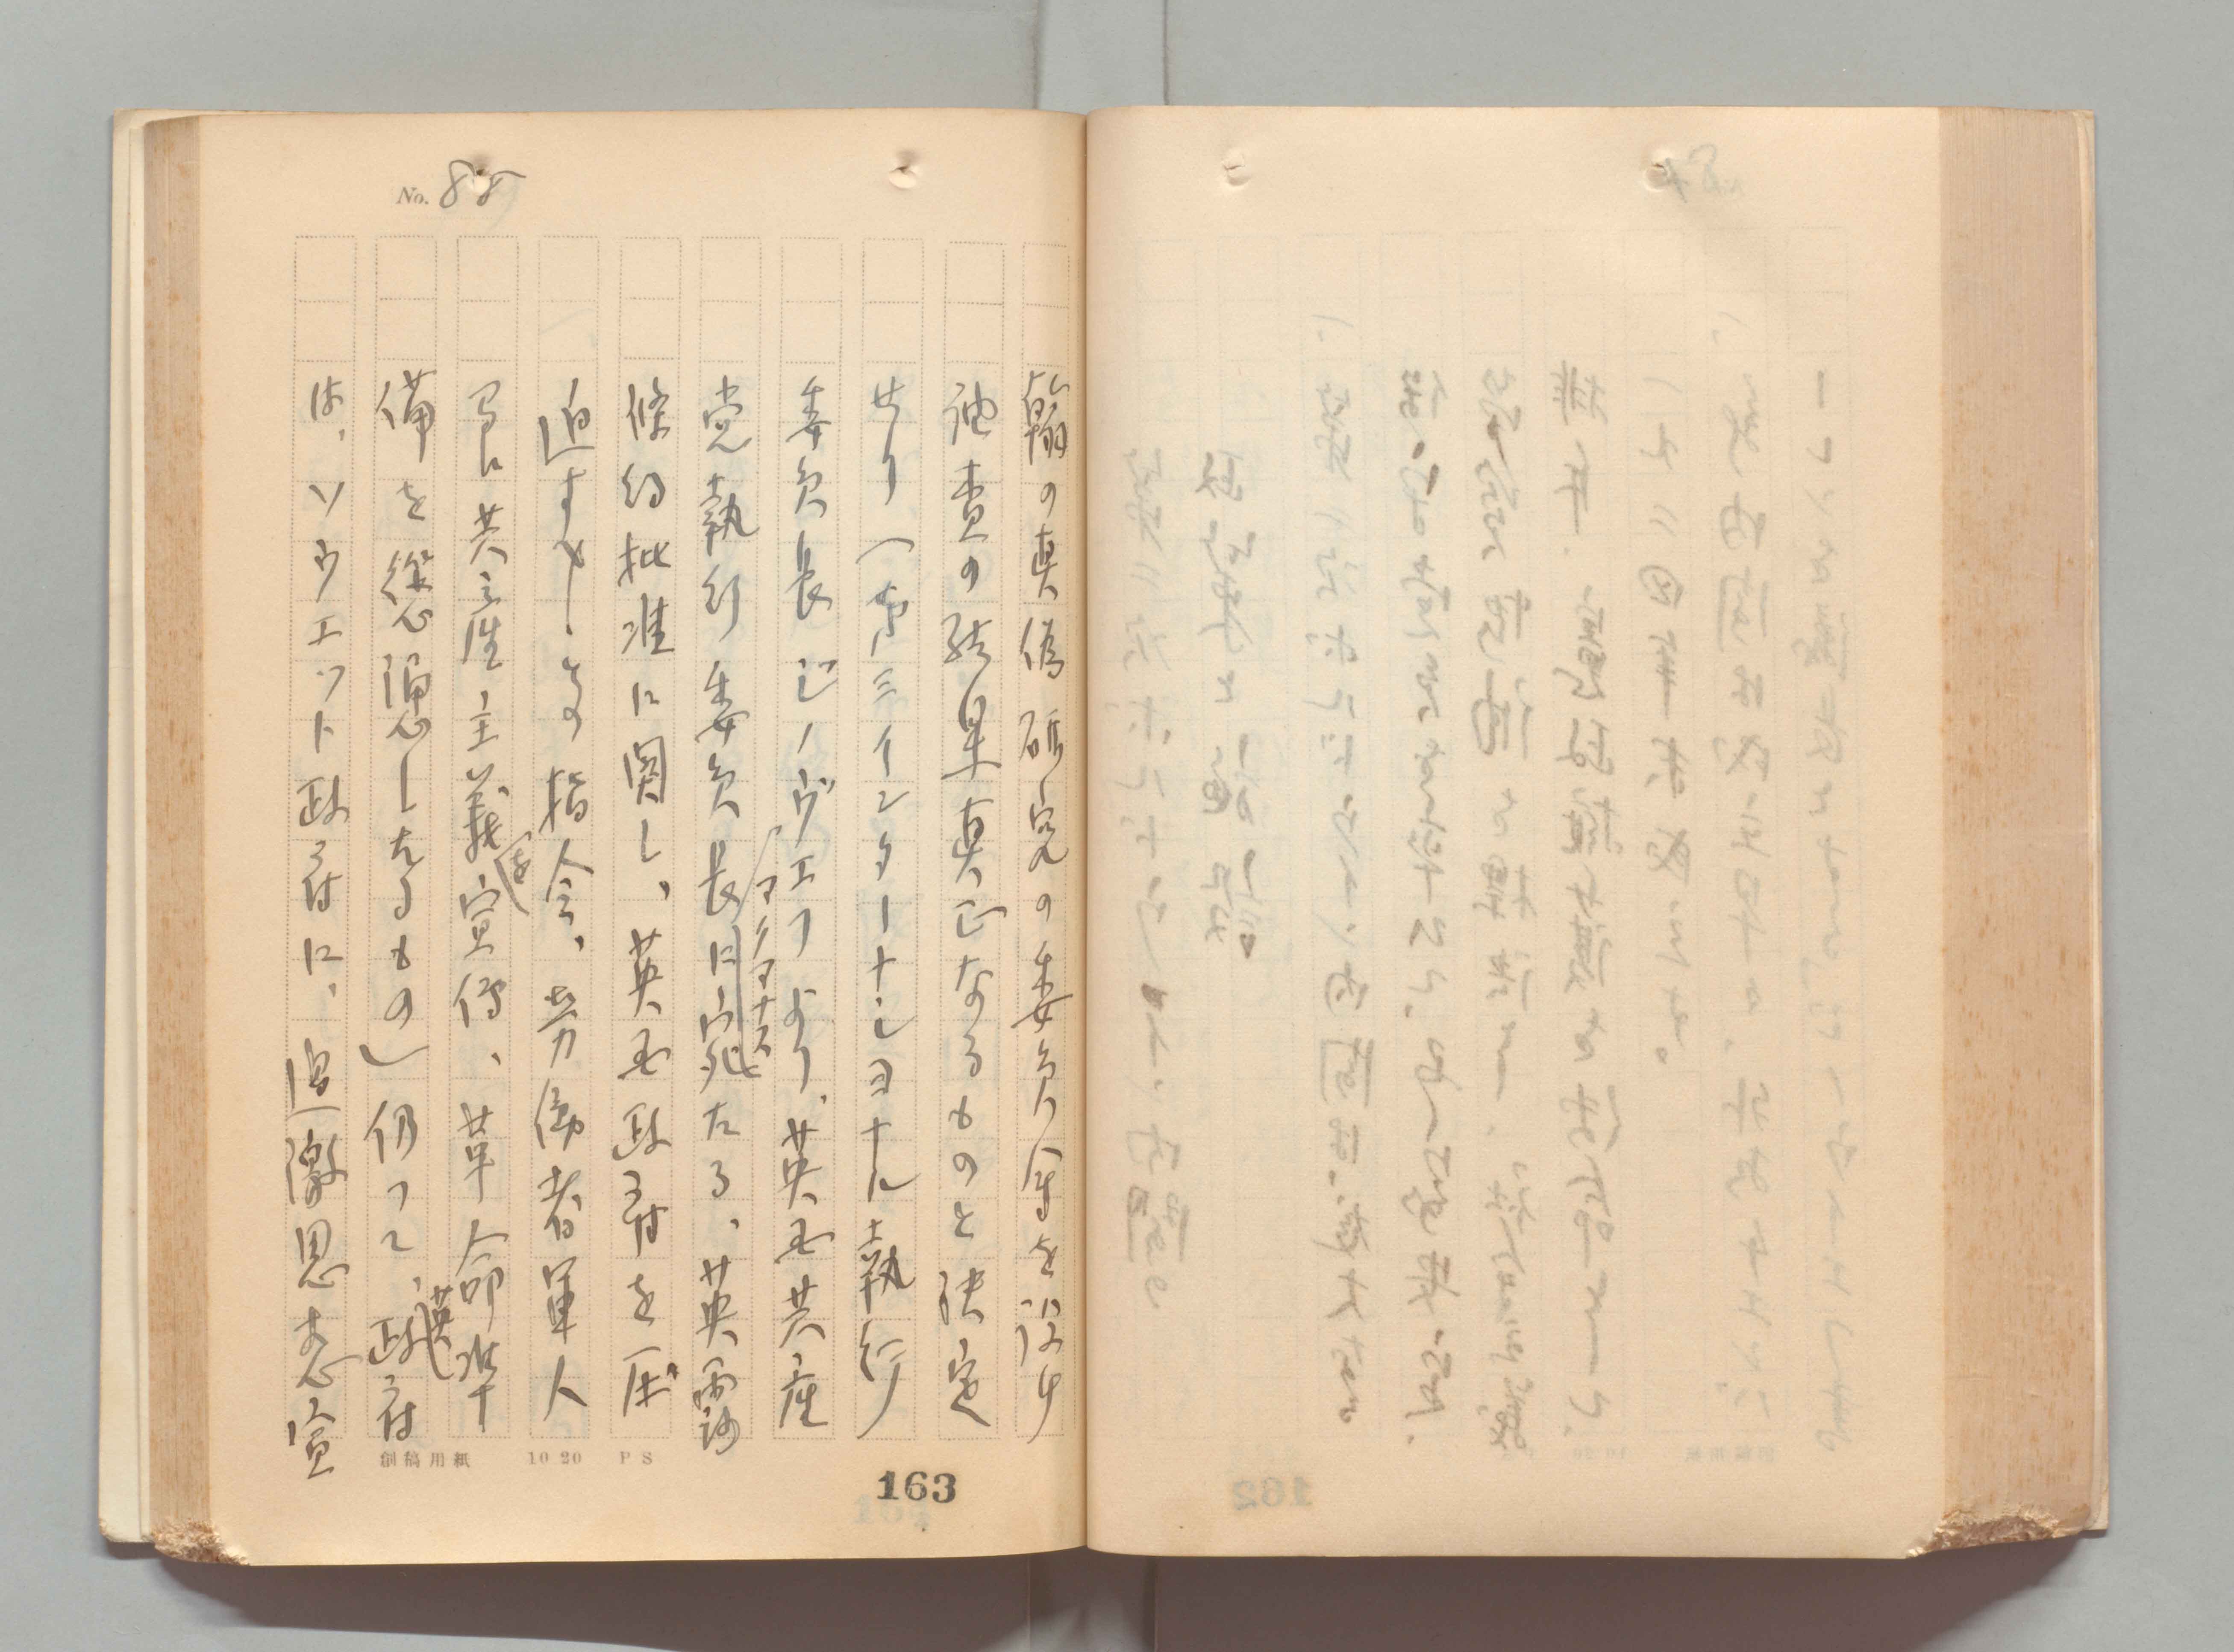 No. 88
翰の真偽研究の委員会を設け
調査の結果真正なるものと決定
せり(第三インターナショナル執行
委員長ジノヴエフより、英国共産
党執行委員長マクマナスに宛たる、英露
條約批准に関し、英国政府を圧
迫すべしとの指令、労働者軍人
間に共産主義を宣傳、革命準
備を慫慂したるもの)仍つて、英政府
は、ソウエット政府に、過激思想宣
創稿用紙 10 20 PS
163